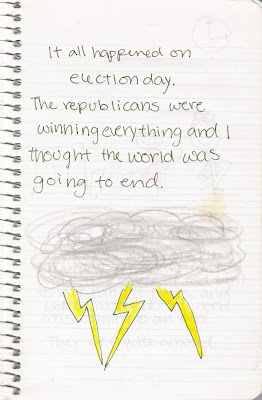 It all happened on
election day.
The republicans were
winning everything and I
thought the world was
going to end.